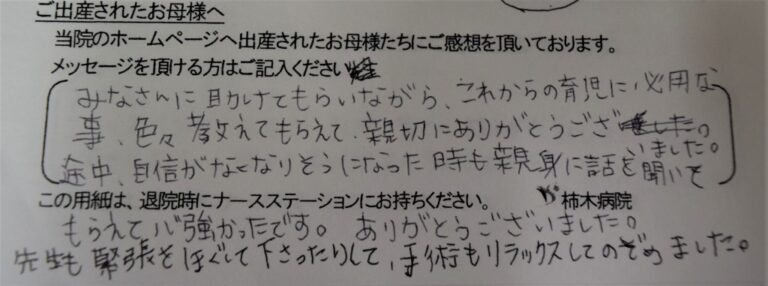 ご出産されたお母様へ
当院のホームページへ出産されたお母様たちにご感想を頂いております。
メッセージを頂ける方はご記入ください
みなさんに助けてもらいながら、これからの育児に必用な
事、色々教えてもらえて、親切にありがとうござ
いました。
途中、自信がなくなりそうになった時も親身に話を聞いて
この用紙は、退院時にナースステーションにお持ちください。 柿木病院
もらえて心強かったです。 ありがとうございました。
先生も緊張をほぐして下さったりして、手術もリラックスしてのぞめました。